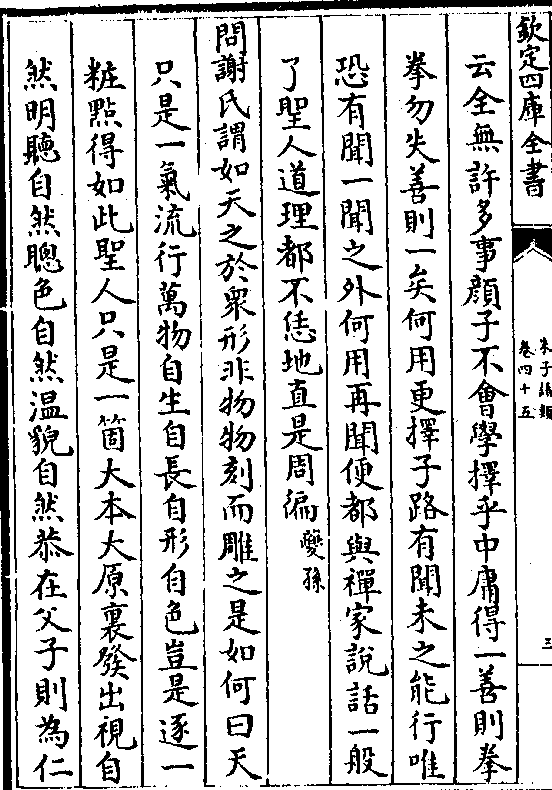 欽定四庫全書
朱子語類
卷四十五
三
云全無許多事顔子不會學擇乎中庸得一善則拳
拳勿失善則一矣何用更擇子路有聞未之能行唯
恐有聞一聞之外何用再聞便都與禪家說話一般
了聖人道理都不恁地直是周徧夔孫
問謝氏謂如天之於衆形非物物刻而雕之是如何曰天
只是一氣流行萬物自生自長自形自色豈是逐一
粧點得如此聖人只是一箇大本大原裏發出視自
然明聽自然聰色自然温貌自然恭在父子則為仁